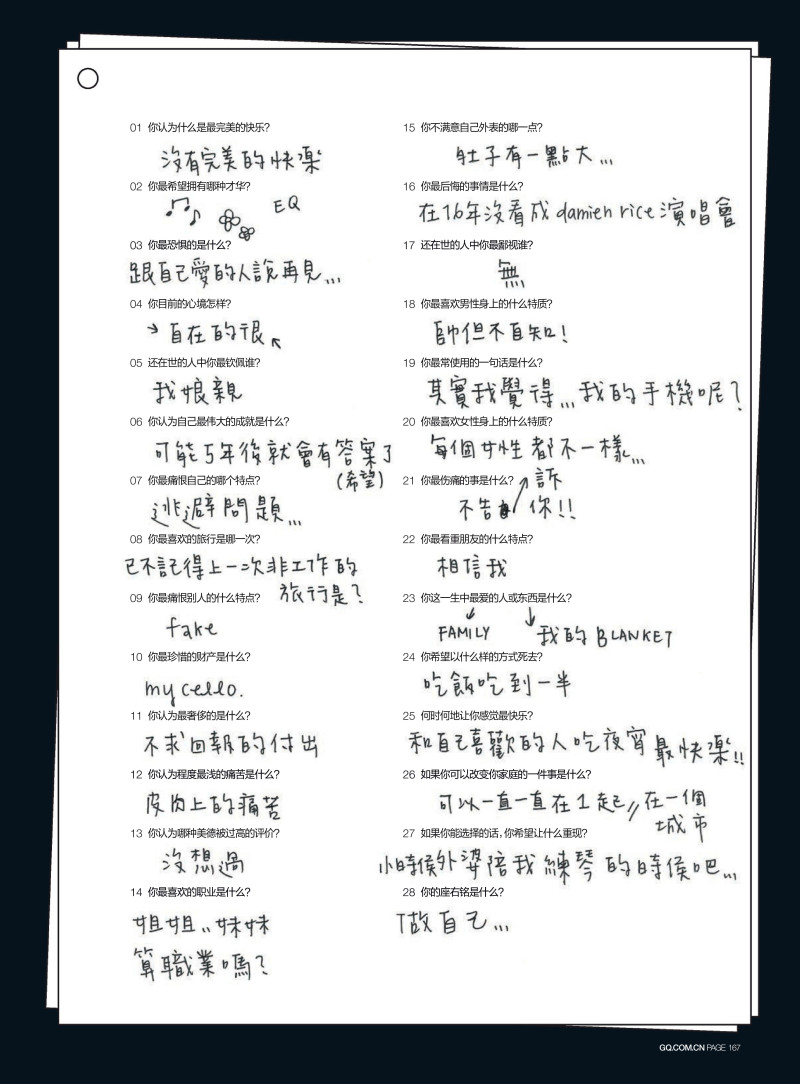 01 你认为什么是最完美的快乐?
沒有完美的快樂
02 你最希望拥有哪种才华?
EQ
03 你最恐惧的是什么?
跟自己愛的人說再見...
04 你目前的心境怎样?
自在的很
05 还在世的人中你最钦佩谁?
我娘親
06 你认为自己最伟大的成就是什么?
可能5年後就會有答案了
(希望)
07 你最痛恨自己的哪个特点?
逃避問題...
08 你最喜欢的旅行是哪一次?
已不記得上一次非工作的
旅行是?
09 你最痛恨别人的什么特点?
fake
10 你最珍惜的财产是什么?
my cello.
11 你认为最奢侈的是什么?
不求回報的付出
12 你认为程度最浅的痛苦是什么?
皮肉上的痛苦
13 你认为哪种美德被过高的评价?
沒想過
14 你最喜欢的职业是什么?
姐姐..妹妹
算職業嗎?
15 你不满意自己外表的哪一点?
肚子有一點大...
16 你最后悔的事情是什么?
在16年沒看成 damien rice 演唱會
17 还在世的人中你最鄙视谁?
無
18 你最喜欢男性身上的什么特质?
帥但不自知!
19 你最常使用的一句话是什么?
其實我覺得...我的手機呢?
20 你最喜欢女性身上的什么特质?
每個女性都不一樣...
21 你最伤痛的事是什么?
不告訴你!!
22 你最看重朋友的什么特点?
相信我
23 你这一生中最爱的人或东西是什么?
FAMILY 我的 BLANKET
24 你希望以什么样的方式死去?
吃飯吃到一半
25 何时何地让你感觉最快乐?
和自己喜歡的人吃夜宵最快樂!!
26 如果你可以改变你家庭的一件事是什么?
可以一直一直在1起//在一個
城市
27 如果你能选择的话,你希望让什么重现?
小時候外婆陪我練琴的時候吧...
28 你的座右铭是什么?
做自己...
GQ.COM.CN PAGE 167